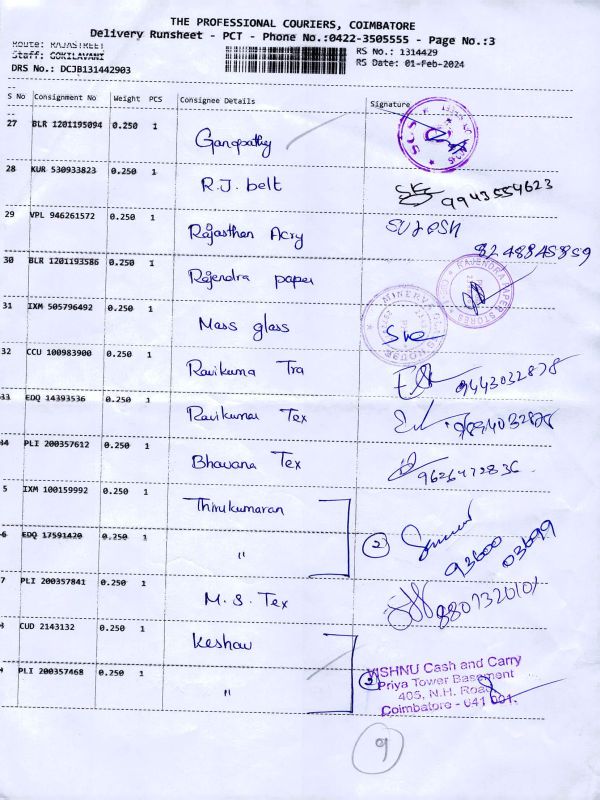 THE PROFESSIONAL COURIERS, COIMBATORE
Delivery Runsheet - PCT - Phone No.:0422-3505555 - Page No.:3
Route: RAJASTREET
Staff: GOKILAVANI
RS No.: 1314429
DRS No.: DCJB131442903
RS Date: 01-Feb-2024
S No Consignment No Weight PCS Consignee Details Signature
27 BLR 1201195094 0.250 1 Ganapathy
28 KUR 530933823 0.250 1 R.J. belt 9943554623
29 VPL 946261572 0.250 1 Rajasthan Acry
8248845859
30 BLR 1201193586 0.250 1 Rajendra paper RAJENDRA PAPER STORES
31 IXM 505796492 0.250 1 Mass glass MINERVA
32 CCU 100983900 0.250 1 Ravikuma Tra 9443032878
33 EDQ 14393536 0.250 1 Ravikumar Tex
34 PLI 200357612 0.250 1 Bhavana Tex 9626472836
5 IXM 100159992 0.250 1 Thirukumaran
6 EDQ 17591420 0.250 1 " 2 93600 03699
7 PLI 200357841 0.250 1 M.S. Tex
CUD 2143132 0.250 1 Keshav
PLI 200357468 0.250 1 " 2
VISHNU Cash and Carry
Priya Tower Basement
405, N.H. Road
Coimbatore - 641 001.
9